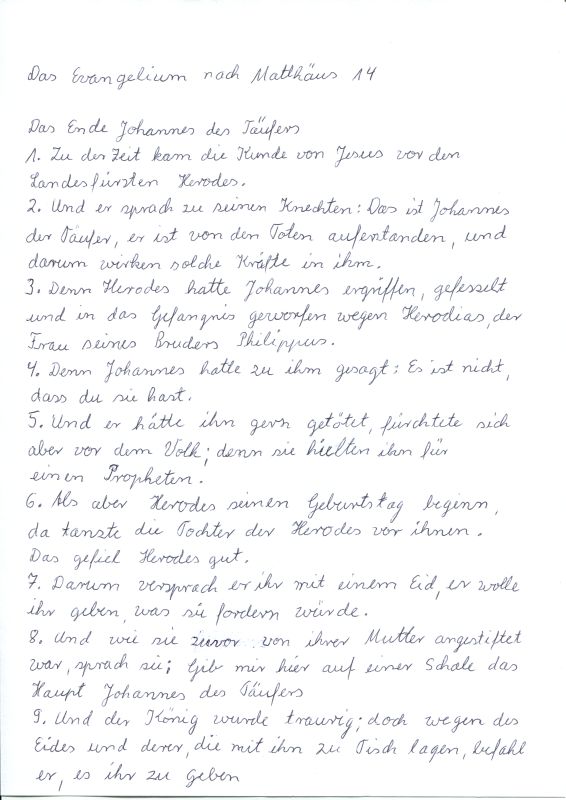 Das Evangelium nach Matthäus 14
Das Ende Johannes des Täufers
1. Zu der Zeit kam die Kunde von Jesus vor den
Landesfürsten Herodes.
2. Und er sprach zu seinen Knechten: Das ist Johannes
der Täufer, er ist von den Toten auferstanden, und
darum wirken solche Kräfte in ihm.
3. Denn Herodes hatte Johannes ergriffen, gefesselt
und in das Gefangnis geworfen wegen Herodias, der
Frau seines Bruders Philippus.
4. Denn Johannes hatte zu ihm gesagt: Es ist nicht,
dass du sie hast.
5. Und er hätte ihn gern getötet, fürchtete sich
aber vor dem Volk; denn sie hielten ihn für
einen Propheten.
6. Als aber Herodes seinen Geburtstag beginn,
da tanzte die Tochter der Herodes vor ihnen.
Das gefiel Herodes gut.
7. Darum versprach er ihr mit einem Eid, er wolle
ihr geben, was sie fordern würde.
8. Und wie sie zuvor von ihrer Mutter angestiftet
war, sprach sie; Gib mir hier auf einer Schale das
Haupt Johannes des Täufers
9. Und der König wurde traurig; doch wegen des
Eides und derer, die mit ihn zu Tisch lagen, befahl
er, es ihr zu Geben